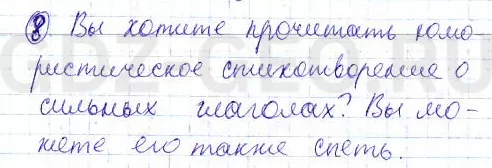 ⑧ Вы хотите прочитать юмо-
ристическое стихотворение о
сильных глаголах? Вы мо-
жете его также спеть.